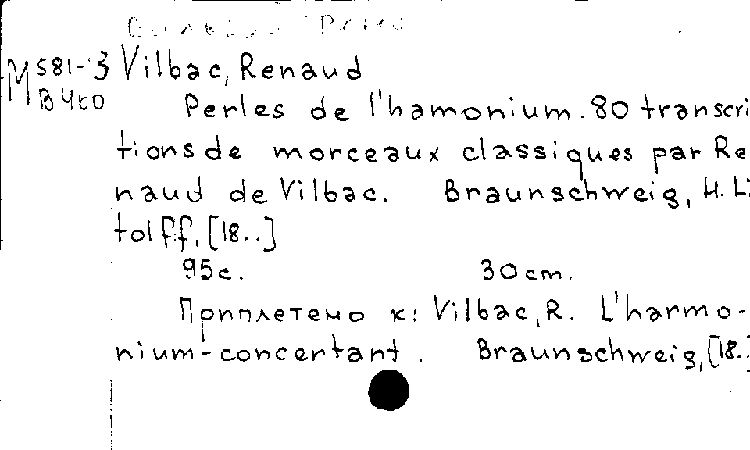 M S81-3 Vilbac, Renaud
B 460 Perles de l'hamonium. 80 transcri
tions de morceaux classiques par Re
naud de Vilbac. Braunschweig, H. Li
tolff, [18..]
95c. 30 cm.
Приплетено к: Vilbac, R. L'harmo-
nium-concertant. Braunschweig, [18..